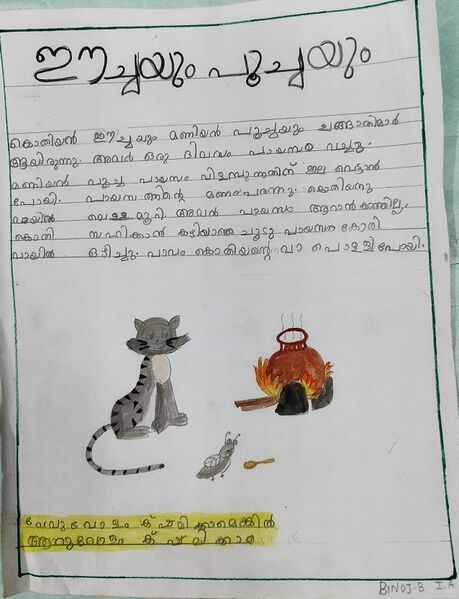 ഈച്ചയും പൂച്ചയും
കൊതിയൻ ഈച്ചയും മണിയൻ പൂച്ചയും ചങ്ങാതിമാർ
ആയിരുന്നു. അവർ ഒരു ദിവസം പായസം വച്ചു.
മണിയൻ പൂച്ച പായസം വിളമ്പുന്നതിന് ഇല വെട്ടാൻ
പോയി. പായസത്തിന്റെ മണം പരന്നു. കൊതിയനു
വായിൽ വെള്ളമൂറി. അവൻ പായസം ആറാൻ കാത്തില്ല.
കൊതി സഹിക്കാൻ കഴിയാതെ ചൂടു പായസം കോരി
വായിൽ ഒഴിച്ചു. പാവം കൊതിയന്റെ വാ പൊള്ളിപോയി.
വേവുവോളം ക്ഷമിക്കാമെങ്കിൽ
ആറുവോളം ക്ഷമിക്കാം
BINOJ.B I.A